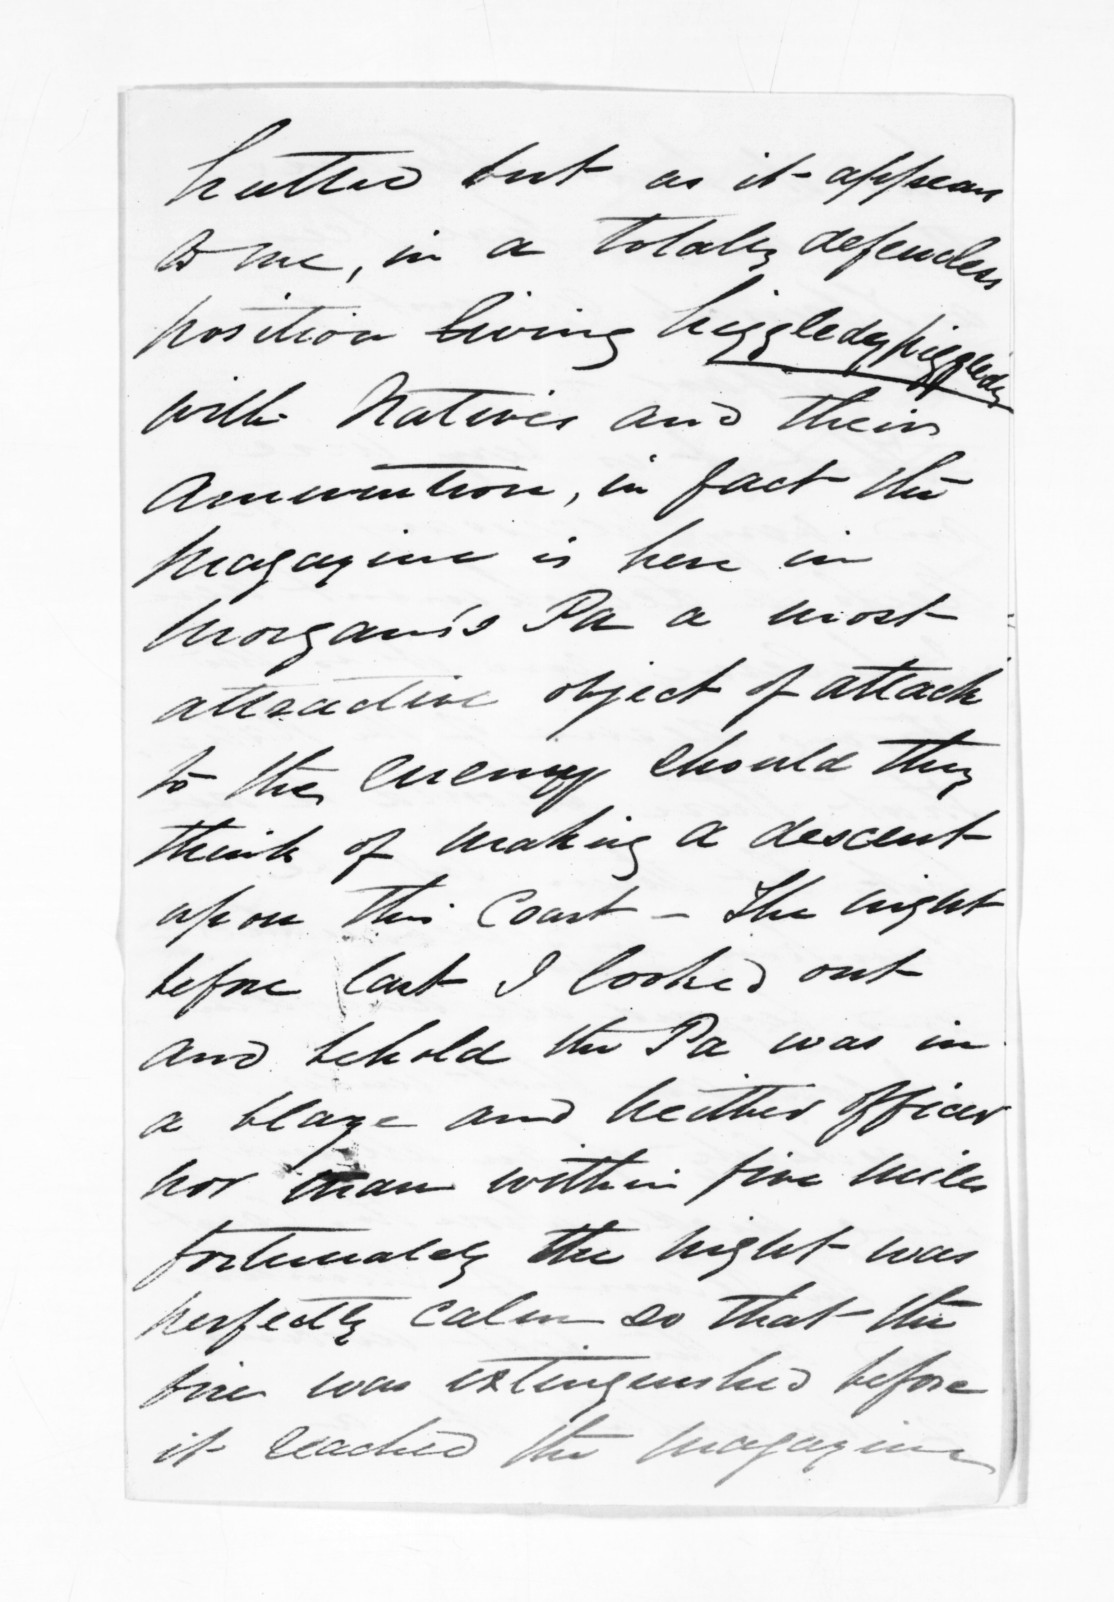 hutted but as it appears
to me, in a totally defenceless
position living higgledy piggledy
with Natives and their
Amunition, in fact the
Magazine is here in
Morgan's Pa a most
attractive object of attack
to the enemy should they
think of making a descent
upon this Coast - The night
before last I looked out
and behold the Pa was in
a blaze and neither officer
nor man within five miles
fortunately the night was
perfectly calm so that the
fire was extinguished before
it reached the magazine